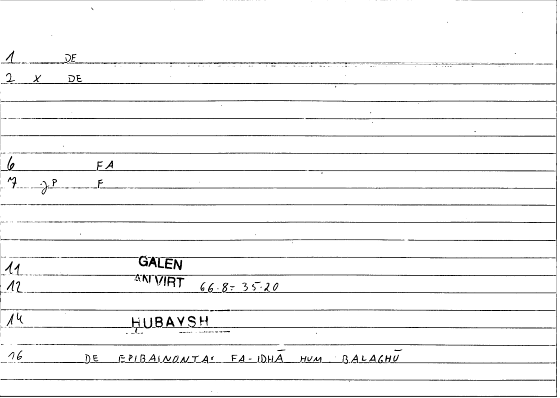 1 DE
2 X DE
6 FA
7 J.P F
11 GALEN
12 AN VIRT 66.8 = 35.20
14 HUBAYSH
16 DE EPIBAINONTA: FA-IDHĀ HUM BALAGHŪ